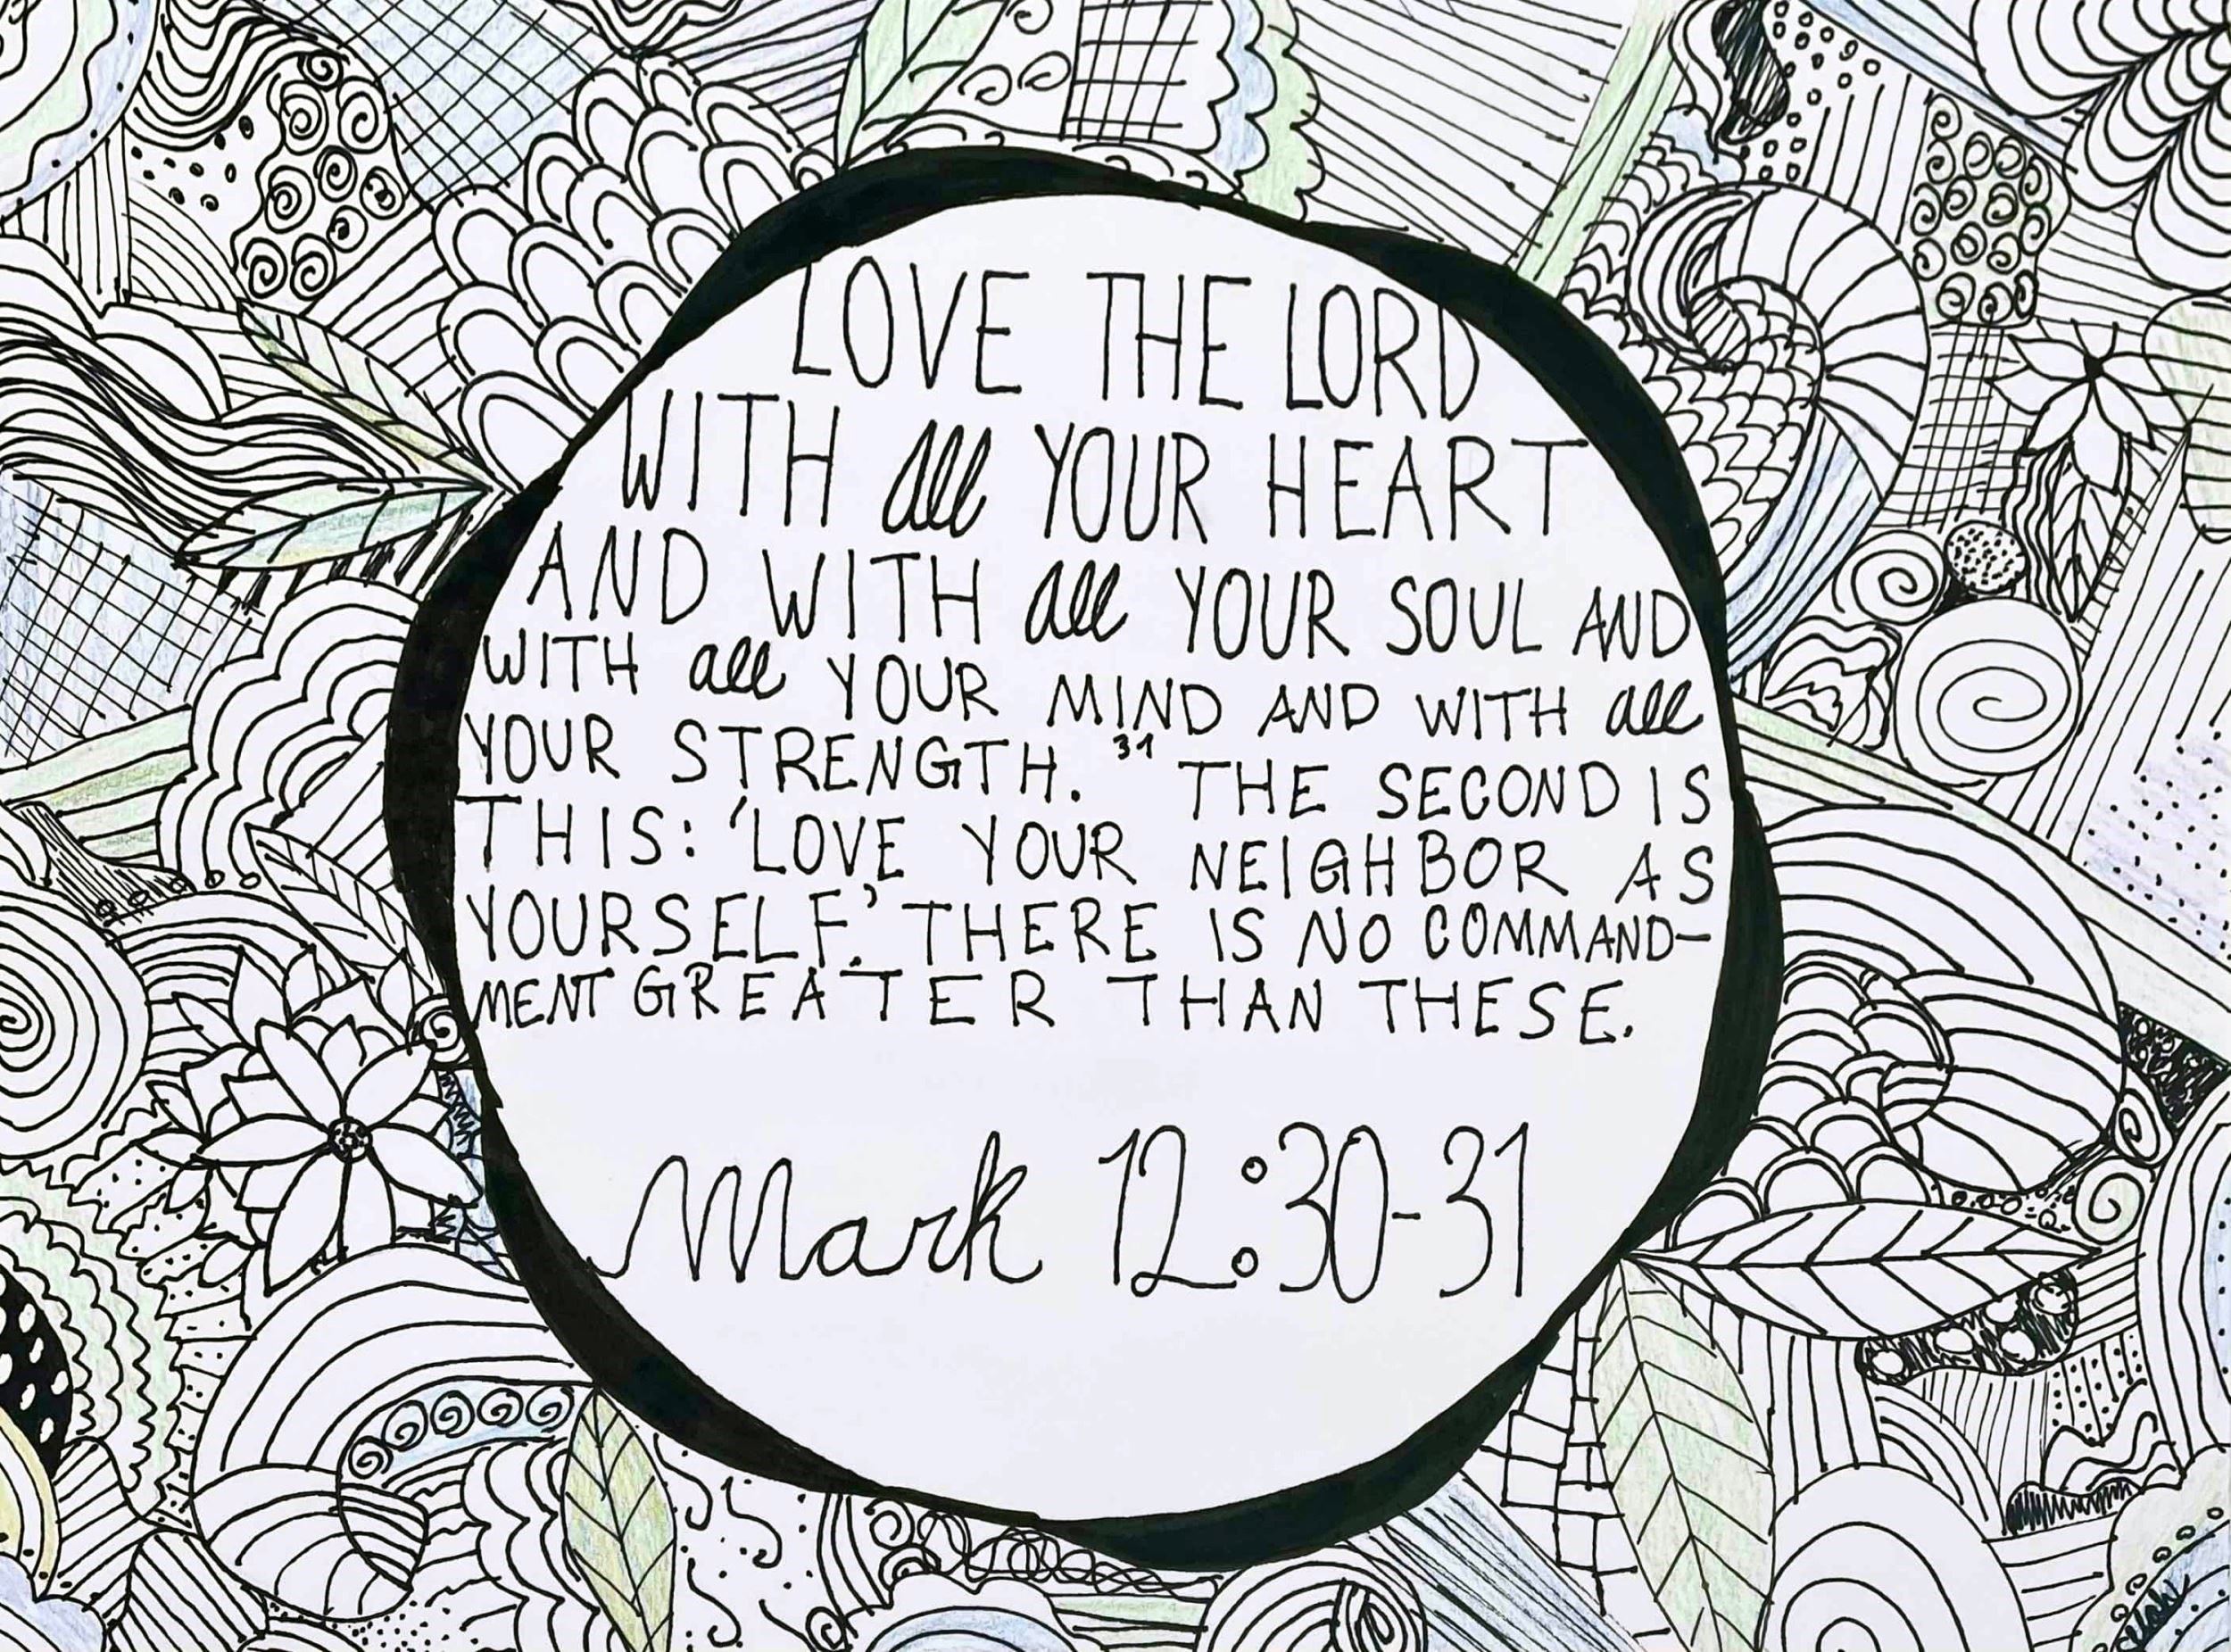 LOVE THE LORD
WITH all YOUR HEART
AND WITH all YOUR SOUL AND
WITH all YOUR MIND AND WITH all
YOUR STRENGTH. 31 THE SECOND IS
THIS: 'LOVE YOUR NEIGHBOR AS
YOURSELF.' THERE IS NO COMMAND-
MENT GREATER THAN THESE.
Mark 12:30-31